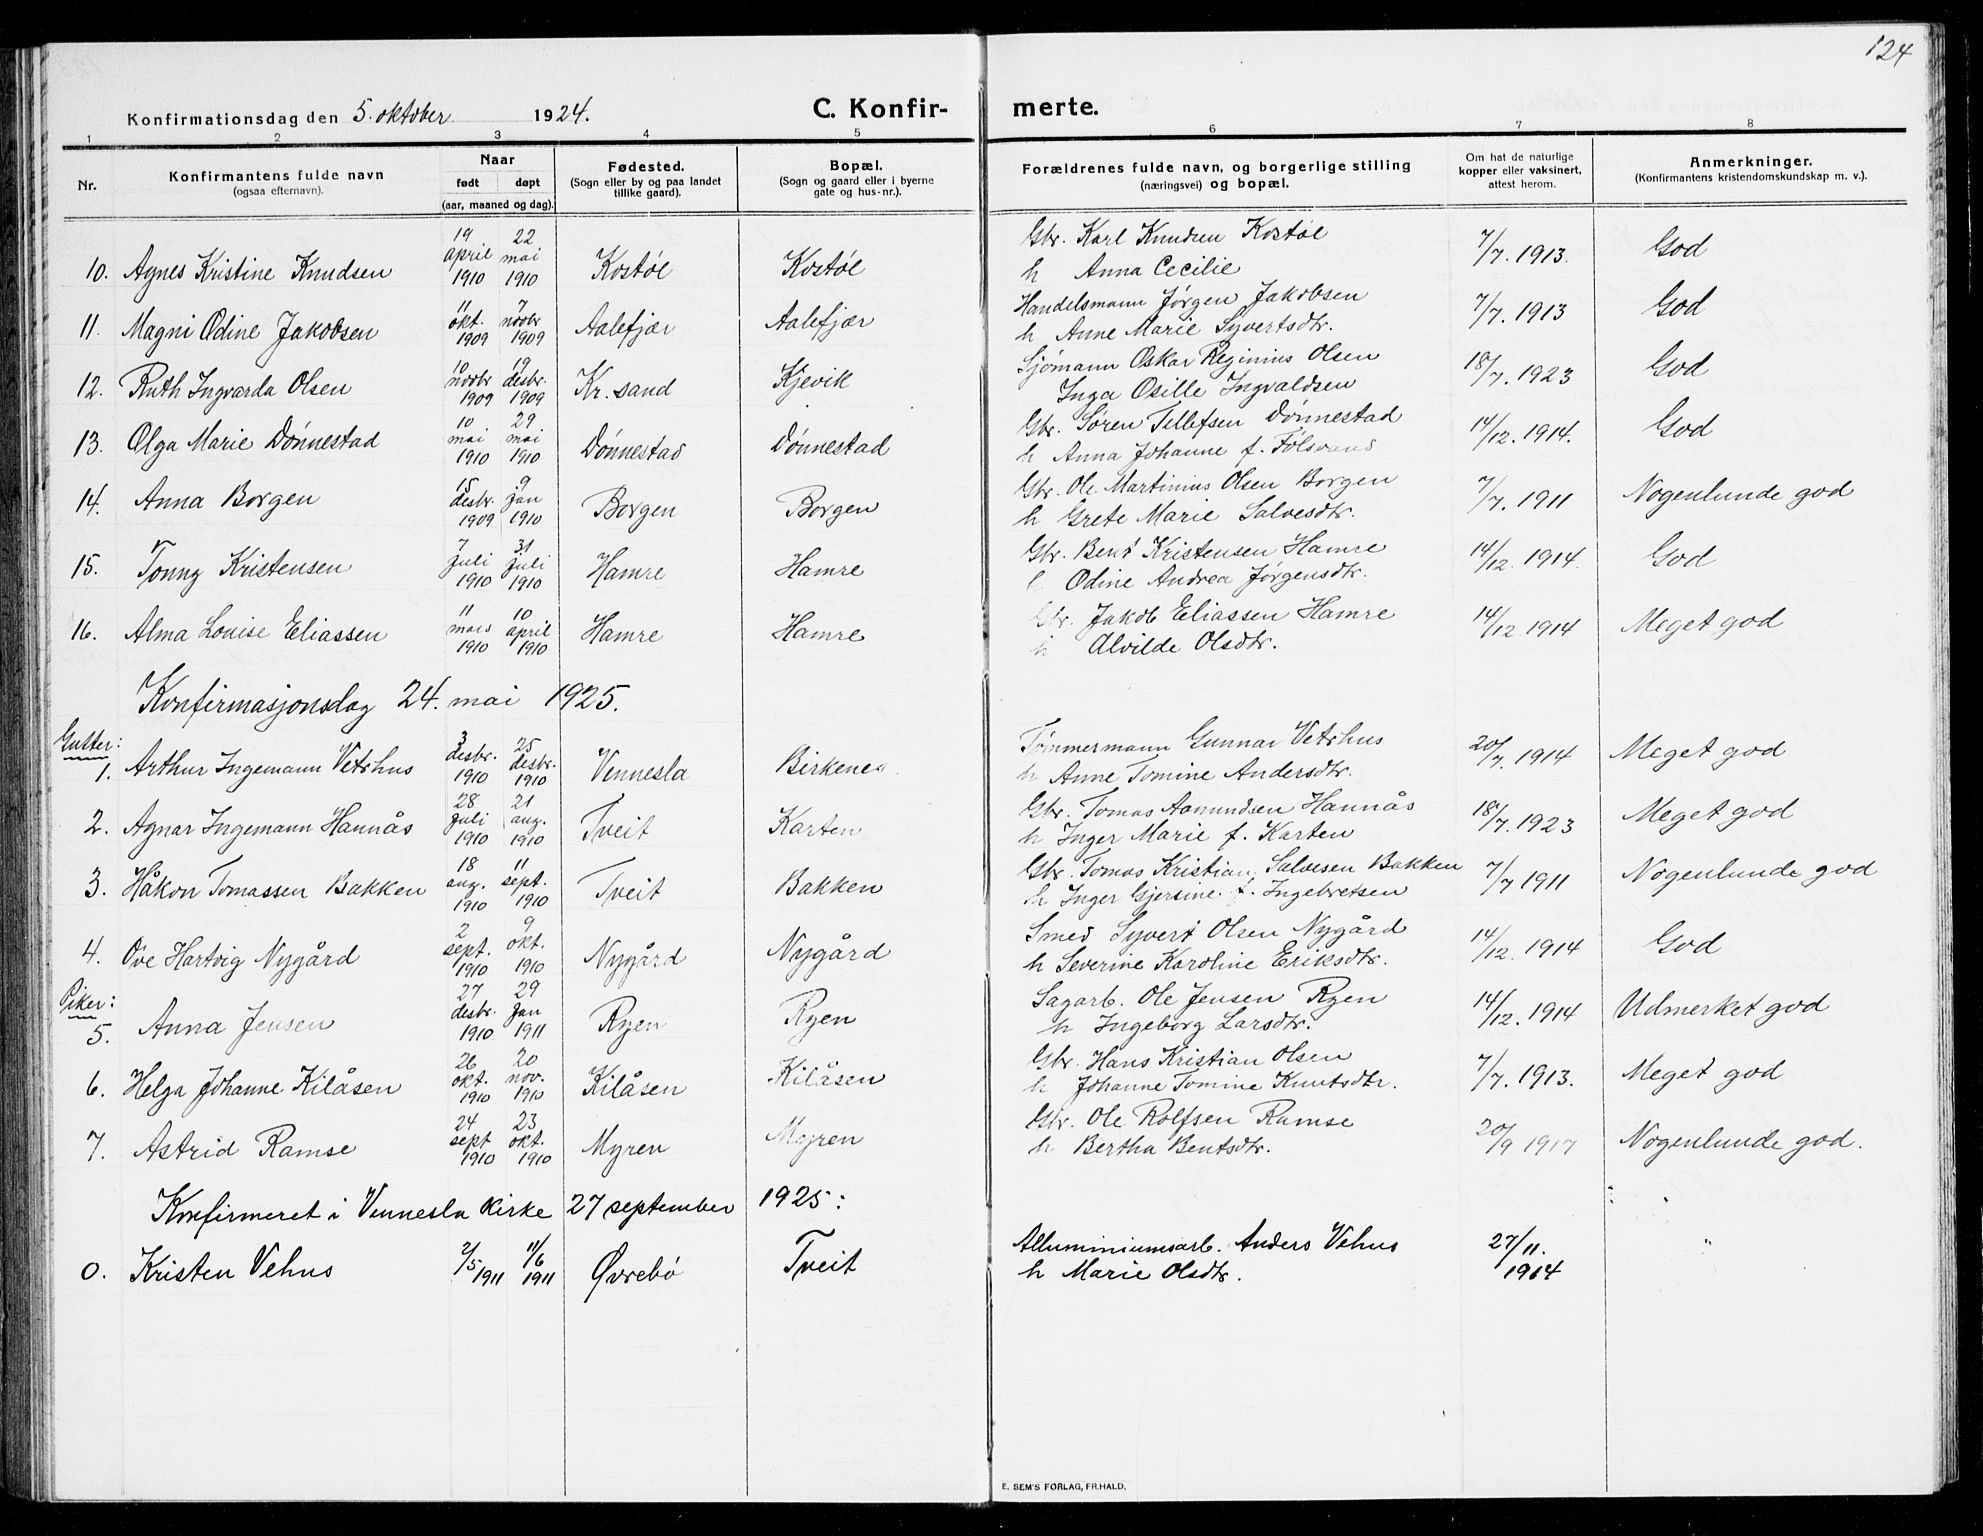 124
Konfirmationsdag den 5. oktober 1924. C. Konfir- merte.
1 2 3 4 5 6 7 8
Nr. Konfirmantens fulde navn (ogsaa efternavn). Naar født døpt (aar, maaned og dag). Fødested. (Sogn eller by og paa landet tillike gaard). Bopæl. (Sogn og gaard eller i byerne gate og hus-nr.). Forældrenes fulde navn, og borgerlige stilling (næringsvei) og bopæl. Om hat de naturlige kopper eller vaksinert, attest herom. Anmerkninger. (Konfirmantens kristendomskundskap m. v.).
10. Agnes Kristine Knudsen 19 april 1910 22 mai 1910 Kostøl Kostøl Gbr. Karl Knudsen Kostøl h Anna Cecilie 7/7. 1913. God
11. Magni Odine Jakobsen 11 okt. 1909 7 novbr 1909 Aalefjær Aalefjær Handelsmann Jørgen Jakobsen h Anne Marie Syvertsdtr. 7/7. 1913 God
12. Ruth Ingvarda Olsen 10 novbr 1909 19 desbr. 1909 Kr. sand Kjevik Sjømann Oskar Reginius Olsen Inga Osille Ingvaldsen 18/7. 1923 God
13. Olga Marie Dønnestad 10 mai 1910 29 mai 1910 Dønnestad Dønnestad Gbr. Søren Tellefsen Dønnestad h Anna Johanne f. Følsvand 14/12. 1914. God
14. Anna Borgen 15 desbr. 1909 9 jan 1910 Borgen Borgen Gbr. Ole Martinius Olsen Borgen h Grete Marie Salvesdtr. 7/7. 1911 Nogenlunde god
15. Tonny Kristensen 7 juli 1910 31 juli 1910 Hamre Hamre Gbr. Bent Kristensen Hamre h Odine Andrea Jørgensdtr. 14/12. 1914. God
16. Alma Louise Eliassen 11 mars 1910 10 april 1910 Hamre Hamre Gbr. Jakob Eliassen Hamre h Alvilde Olsdtr. 14/12 1914 Meget god
Konfirmasjonsdag 24. mai 1925.
Gutter:
1. Arthur Ingemann Vetrhus 3 desbr. 1910 25 desbr. 1910 Vennesla Birkenes Tømmermann Gunnar Vetrhus h Anne Tomine Andersdtr. 20/7. 1914 Meget god
2. Agnar Ingemann Hannås 28 juli 1910 21 aug. 1910 Tveit Karten Gbr. Tomas Aamundsen Hannås h Inger Marie f. Karten 18/7. 1923 Meget god
3. Håkon Tomassen Bakken 18 aug. 1910 11 sept. 1910 Tveit Bakken Gbr. Tomas Kristian Salvesen Bakken h Inger Gjersine f. Ingebretsen 7/7 1911 Nogenlunde god
4. Ove Hartvig Nygård 2 sept. 1910 9 okt. 1910 Nygård Nygård Smed Syvert Olsen Nygård h Severine Karoline Eriksdtr. 14/12. 1914 God
Piker:
5. Anna Jensen 27 desbr. 1910 29 jan 1911 Ryen Ryen Sagarb. Ole Jensen Ryen h Ingeborg Larsdtr. 14/12. 1914 Udmerket god
6. Helga Johanne Kilåsen 26 okt. 1910 20 nov. 1910 Kilåsen Kilåsen Gbr. Hans Kristian Olsen h Johanne Tomine Knutsdtr. 7/7. 1913. Meget god
7. Astrid Ramse 24 sept 1910 23 okt. 1910 Myren Myren Gbr. Ole Rolfsen Ramse h Bertha Bentsdtr. 20/9. 1917 Nogenlunde god.
Konfirmeret i Vennesla kirke 27 september 1925:
0. Kristen Vehus 2/5 1911 11/6 1911 Øvrebø Tveit Alluminiumsarb. Anders Vehus h Marie Olsdtr. 27/11. 1914 "
E. SEM'S FORLAG, FR.HALD.